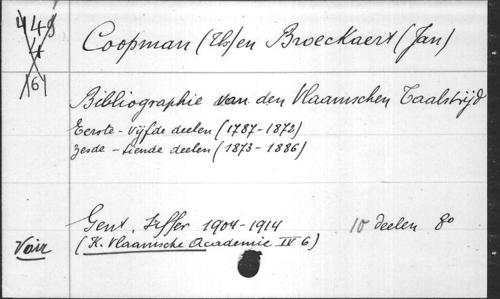 448
4
(6)
Coopman (Th) en Broeckaert (Jan)
Bibliographie van den Vlaamschen Taalstrijd
Eerste - vijfde deelen (1787-1872)
Zesde - tiende deelen (1873-1886)
Gent, Siffer 1904-1914 10 deelen 8o
Voir (K. Vlaamsche Academie IV 6)